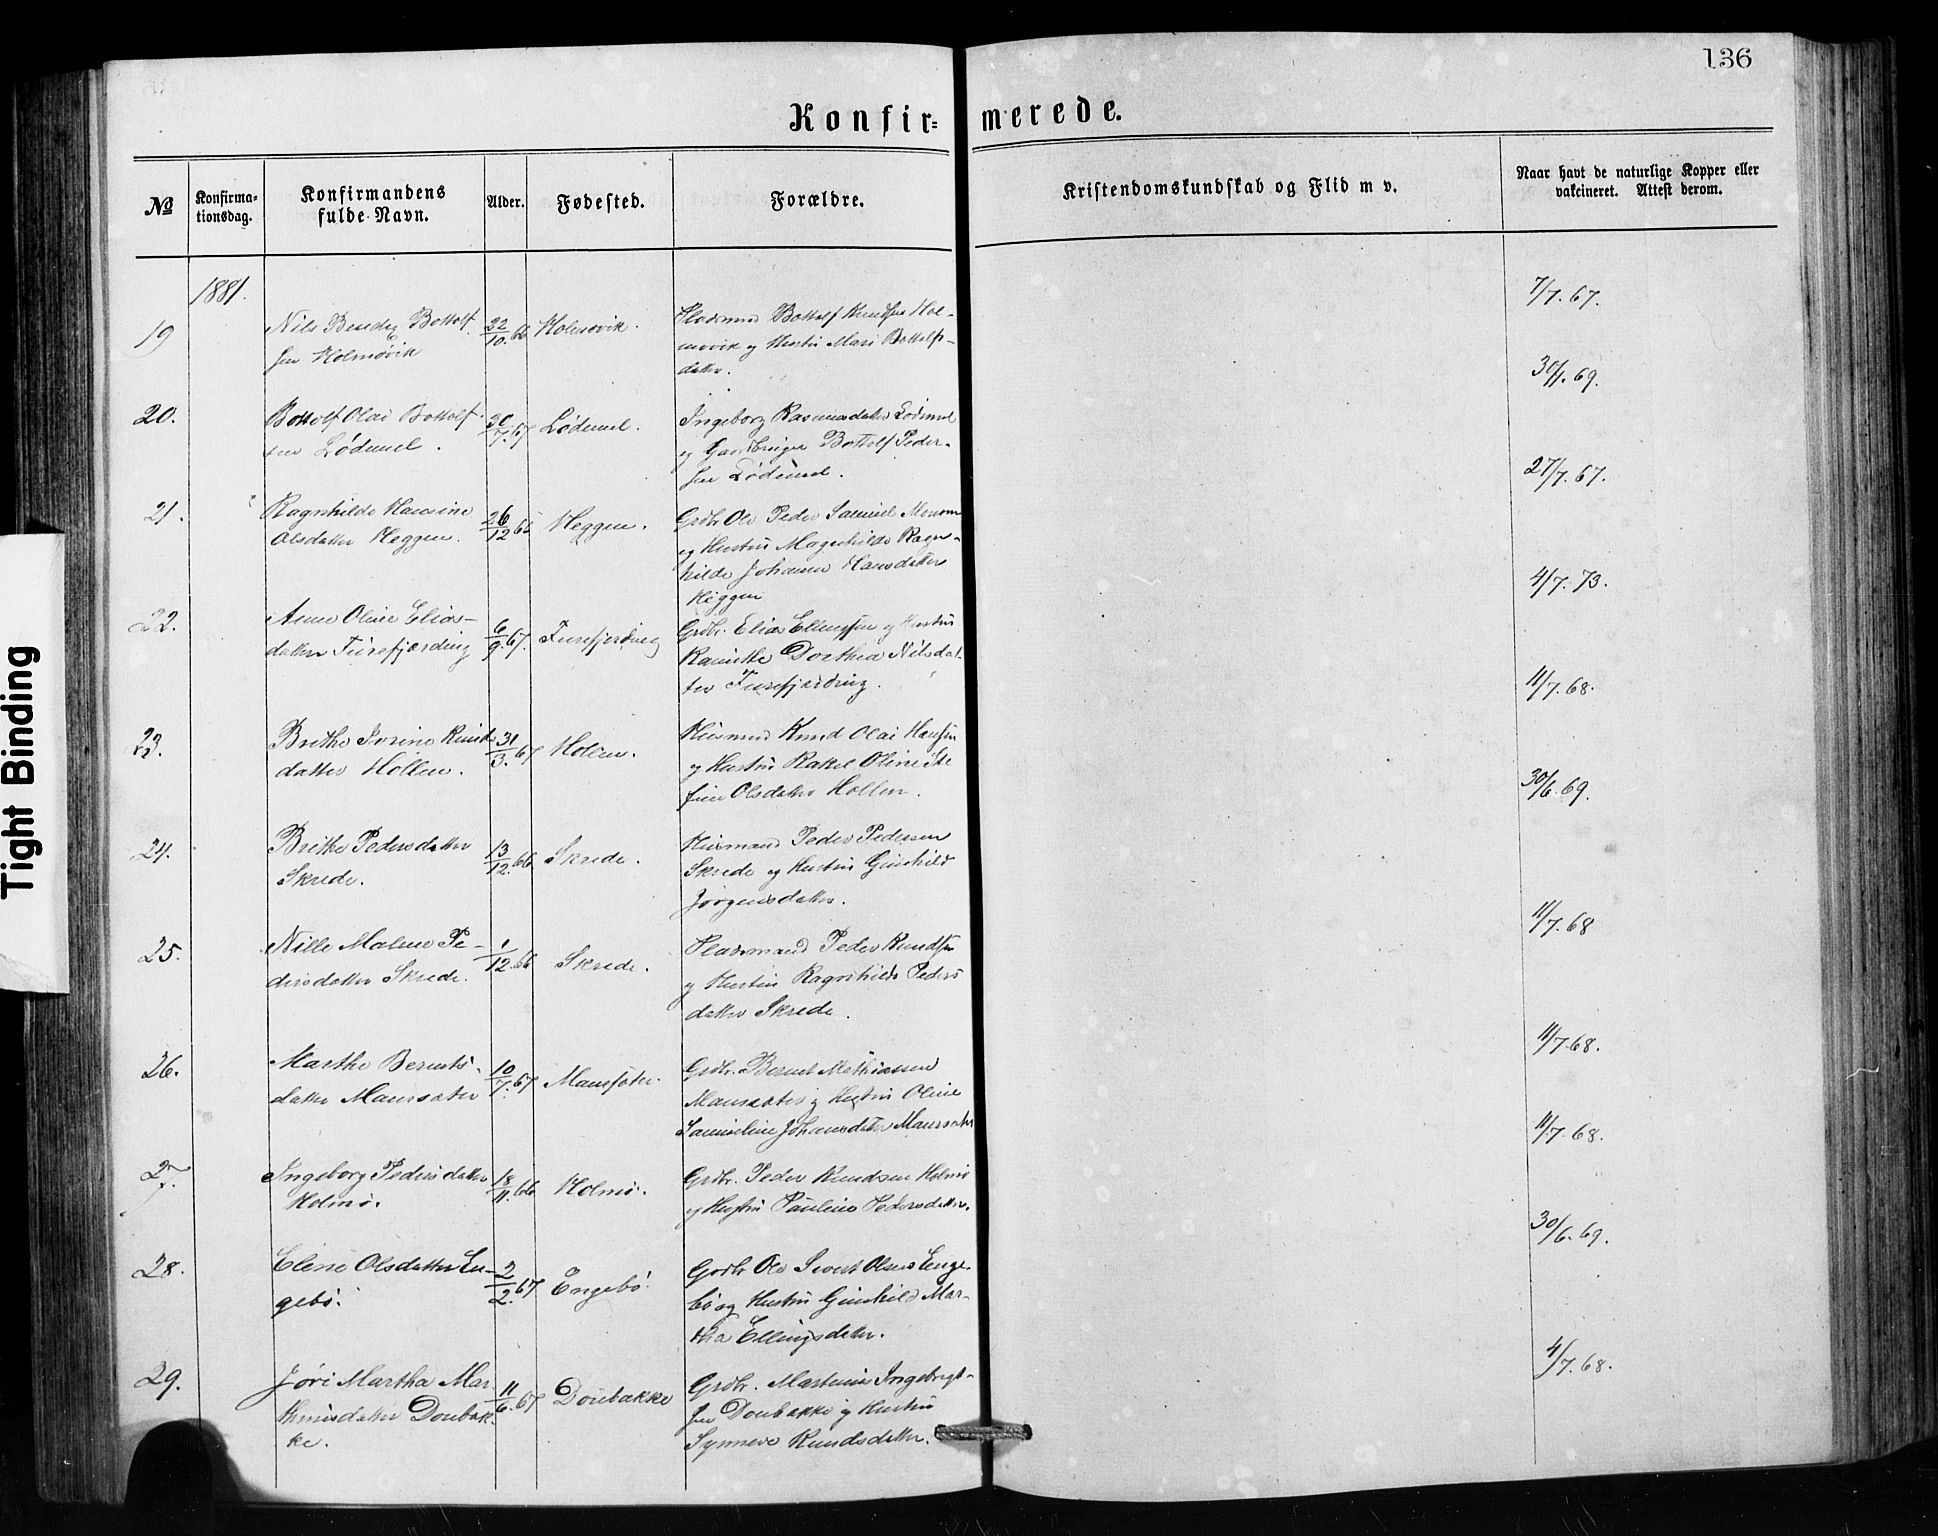 136
Konfir= merede.
№
Konfirma-
tionsdag.
Konfirmandens
fulde Navn.
Alder.
Fødested.
Forældre.
Kristendomskundskab og Flid m v.
Naar havt de naturlige Kopper eller
vakcineret. Attest derom.
1881.
7/7. 67.
19
Nils Bottolf
sen Holmøvik
22/10. 66
Holmøvik.
Bottolf Knudsen Hol-
møvik og Hustru Mari Bottolfs-
datter.
30/1. 69.
20.
Bottolf Olai Bottolf
sen Lødemel.
30/7. 67
Lødemel.
Ingeborg Rasmusdatter Lødemel
og Bottolf Peder-
sen Lødemel.
27/7. 67.
21.
Ragnhilde Hansine
Olsdatter Heggen.
26/12 66
Heggen.
Grdbr Ole Peder Samuel
og Hustru Magnhilde Ragn-
hilde Johanne Hansdatter
Heggen
4/7. 73.
22.
Anne Oline Elias-
datter Furefjording
6/9. 67.
Furefjording
Grdbr. Elias Ellingsen og Hustru
Dorthea Nilsdat-
ter Furefjording.
11/7. 68.
23.
Brithe Josine Knuds
datter Hollen.
31/3. 67
Hollen.
Husmand Knud Olai Hansen
og Hustru Rakel Oline Ste
fine Olsdatter Hollen.
30/6. 69.
24.
Brithe Pedersdatter
Skrede.
13/12. 66
Skrede.
Husmand Peder Pedersen
Skrede og Hustru Gunhild
Jörgensdatter.
11/7. 68
25.
Nille Malene Pe-
dersdatter Skrede.
1/12. 66
Skrede.
Peder Knudsen
og Hustru Ragnhilde Peders
datter Skrede.
11/7. 68.
26.
Marthe Bernts-
datter Maursæter
10/7. 67
Maursæter.
Grdbr. Bernt Mathiassen
Maursæter og Hustru Oline
Samueline Johansdatter Maursæter
11/7. 68.
27.
Ingeborg Pedersdatter
Holmö.
18/11. 66
Holmö.
Grdbr. Peder Knudsen Holmö
og Hustru Pauline Pedersdatter.
30/6. 69.
28.
Eline Olsdatter En-
gebö.
2/2. 67
Engebö.
Grdbr Ole Sivert Olsen Enge-
bö og Hustru Gunhild Mar-
tha Ellingsdatter.
4/7. 68.
29.
Jöri Martha Mar-
thinusdatter Doubak-
ke.
11/6. 67
Doubakke
Grdbr. Martinus Ingebrigt-
sen Doubakke og Hustru
Synneve Knudsdatter.
Tight Binding